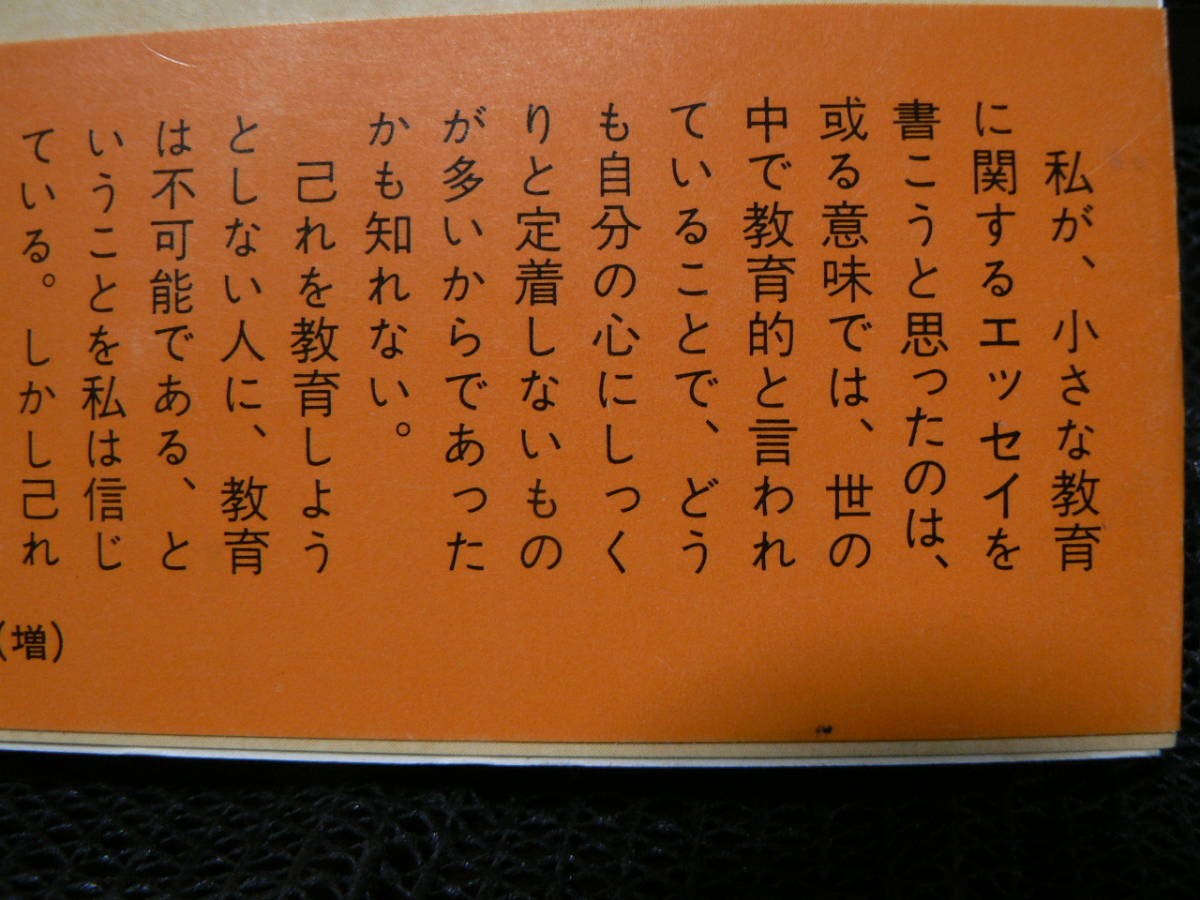 私が、小さな教育
に関するエッセイを
書こうと思ったのは、
或る意味では、世の
中で教育的と言われ
ていることで、どう
も自分の心にしっく
りと定着しないもの
が多いからであった
かも知れない。
　己れを教育しよう
としない人に、教育
は不可能である、と
いうことを私は信じ
ている。しかし己れ
(増)